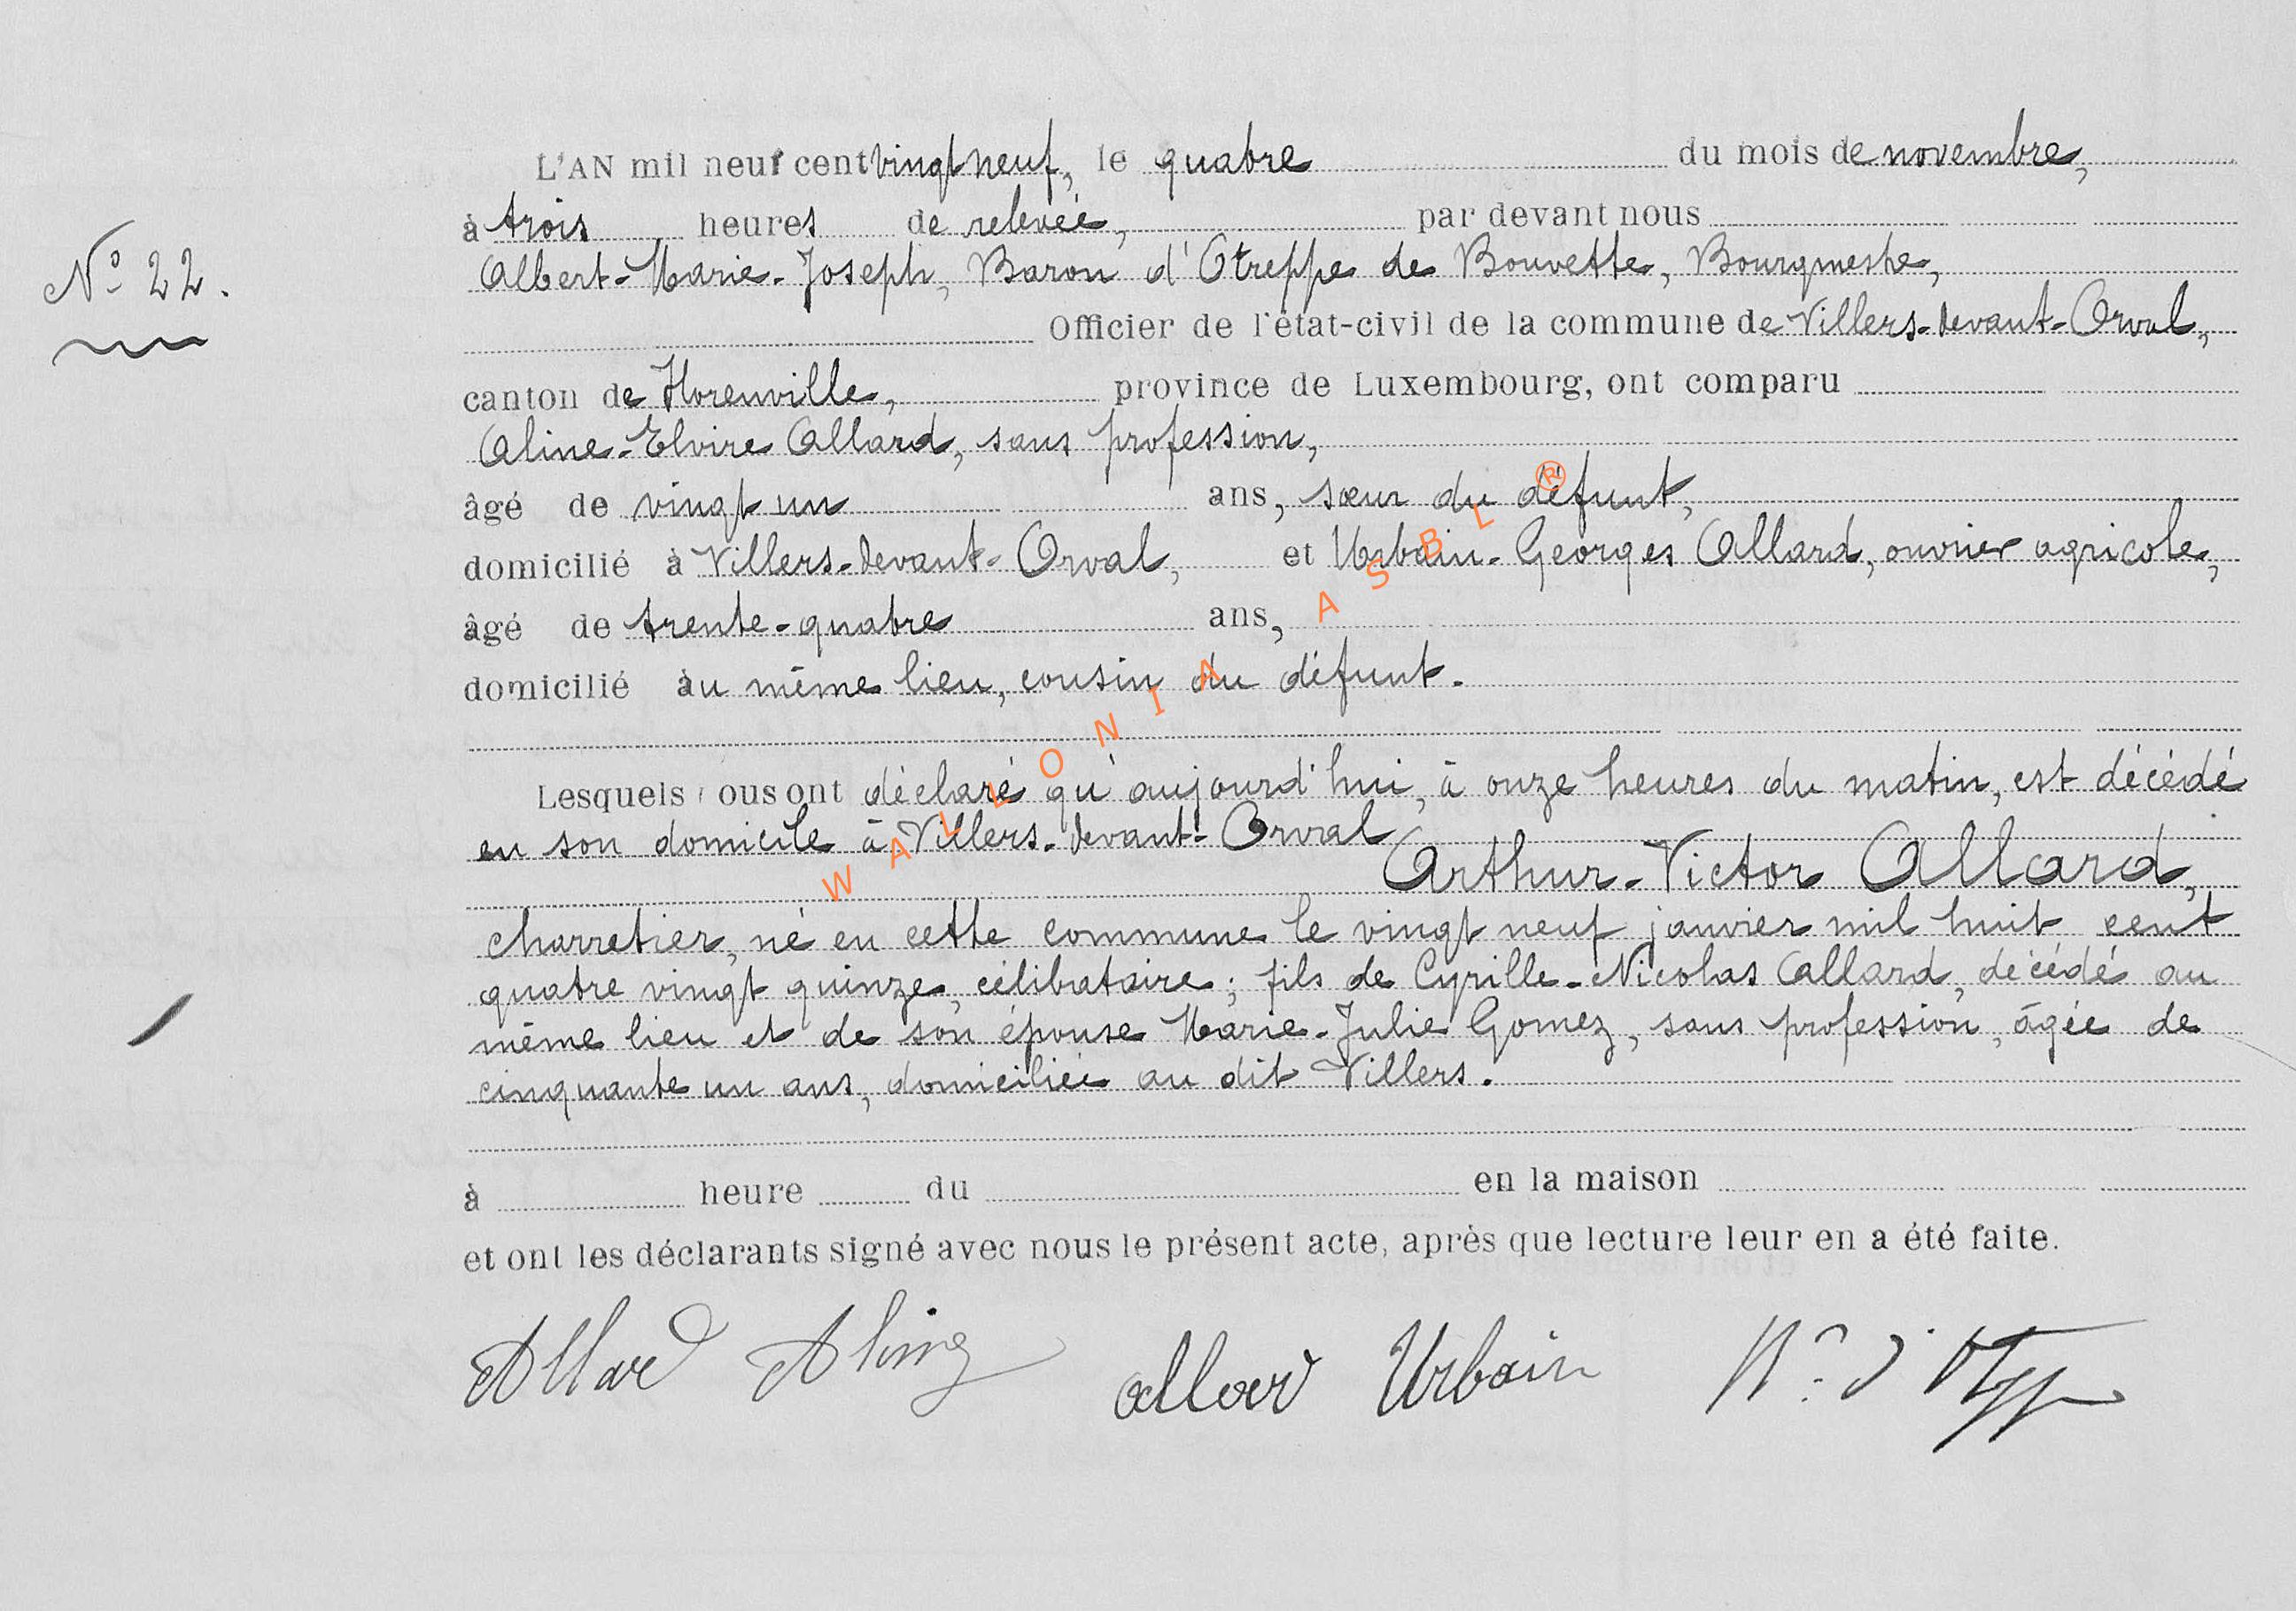 L'AN mil neuf cent vingt neuf, le quatre du mois de novembre,
à trois heures de relevée, par devant nous
N° 22.
Albert-Marie-Joseph, Baron d'Otreppe de Bouvette, Bourgmestre,
Officier de l'état-civil de la commune de Villers-devant-Orval,
canton de Florenville, province de Luxembourg, ont comparu
Aline-Elvire Allard, sans profession,
âgé de vingt un ans, sœur du défunt,
domicilié à Villers-devant-Orval, et Urbain-Georges Allard, ouvrier agricole,
âgé de trente-quatre ans,
domicilié àu même lieu, cousin du défunt.
WALLONIA ASBL ®
Lesquels nous ont déclaré qu'aujourd'hui, à onze heures du matin, est décédé
en son domicile à Villers-devant-Orval
Arthur-Victor Allard,
charretier, né en cette commune le vingt neuf janvier mil huit cent
quatre vingt quinze, célibataire; fils de Cyrille-Nicolas Allard, décédé au
même lieu et de son épouse Marie-Julie Gomez, sans profession, âgée de
cinquante un ans, domiciliée au dit Villers.
à heure du en la maison
et ont les déclarants signé avec nous le présent acte, après que lecture leur en a été faite.
Allard Aline Allard Urbain